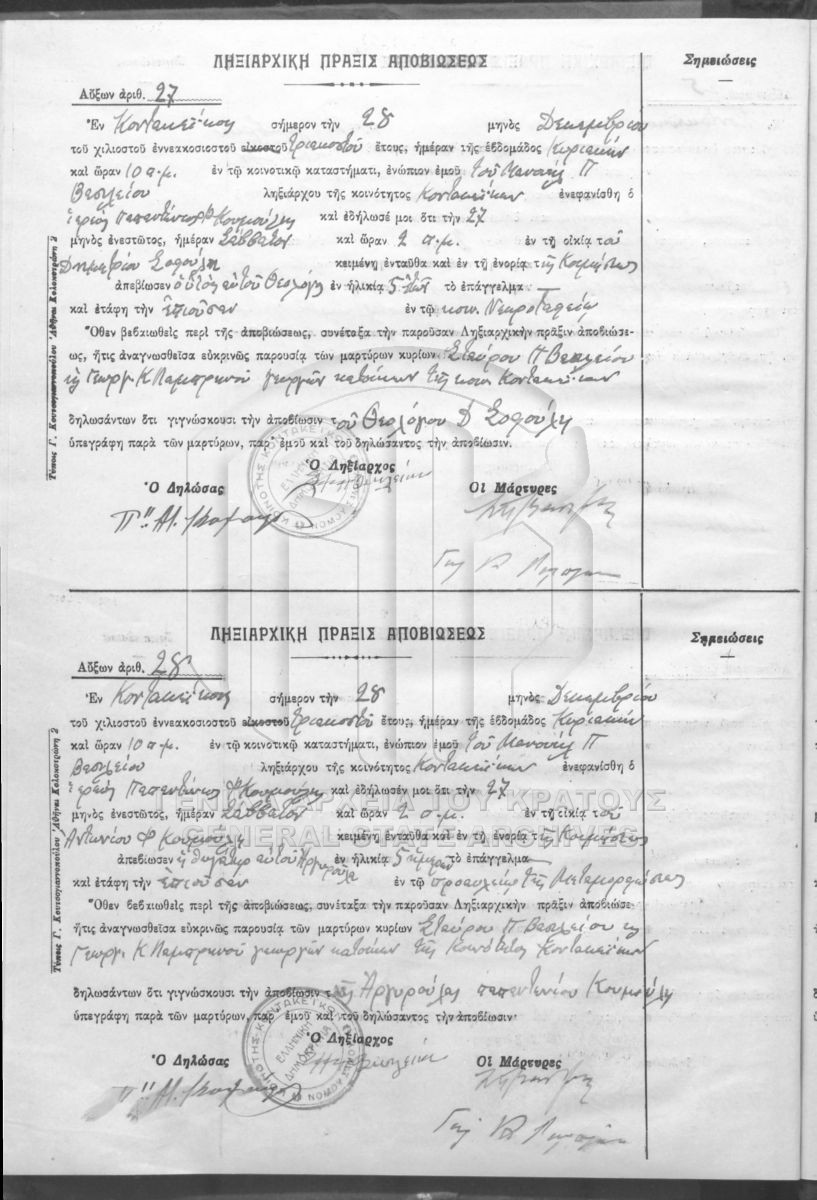 ΛΗΞΙΑΡΧΙΚΗ ΠΡΑΞΙΣ ΑΠΟΒΙΩΣΕΩΣ
Σημειώσεις
Αὔξων ἀριθ. 27
Ἐν σήμερον τὴν 28 μηνὸς Δεκεμβρίου
τοῦ χιλιοστοῦ ἐννεακοσιοστοῦ εἰκοστοῦ τριακοστοῦ ἔτους, ἡμέραν τῆς ἑβδομάδος Κυριακὴν
καὶ ὥραν 10 π.μ. ἐν τῷ κοινοτικῷ καταστήματι, ἐνώπιον ἐμοῦ τοῦ Μανουὴλ Π
Βασιλείου ληξιάρχου τῆς κοινότητος Κοντακεΐκων ἐνεφανίσθη ὁ
ἱερεὺς Παπαντώνιος Φ Κουμούλης καὶ ἐδήλωσέ μοι ὅτι τὴν 27
μηνὸς ἐνεστῶτος, ἡμέραν Σάββατον καὶ ὥραν 2 π.μ. ἐν τῇ οἰκίᾳ τοῦ
Δημητρίου Σοφούλη κειμένῃ ἐνταῦθα καὶ ἐν τῇ ἐνορίᾳ τῆς Κοιμήσεως
ἀπεβίωσεν ὁ υἱὸς αὐτοῦ Θεολόγος ἐν ἡλικίᾳ 5 ἐτῶν τὸ ἐπάγγελμα
καὶ ἐτάφη τὴν ἐπιοῦσαν ἐν τῷ κοιν. Νεκροταφείῳ
Ὅθεν βεβαιωθεὶς περὶ τῆς ἀποβιώσεως, συνέταξα τὴν παροῦσαν Ληξιαρχικὴν πρᾶξιν ἀποβιώσε-
ως, ἥτις ἀναγνωσθεῖσα εὐκρινῶς παρουσίᾳ τῶν μαρτύρων κυρίων Σταύρου Π Βασιλείου
Γεωργ. Κ γεωργῶν κατοίκων τῆς κοιν. Κοντακεΐκων
δηλωσάντων ὅτι γιγνώσκουσι τὴν ἀποβίωσιν τοῦ Θεολόγου Δ Σοφούλη
ὑπεγράφη παρὰ τῶν μαρτύρων, παρ' ἐμοῦ καὶ τοῦ δηλώσαντος τὴν ἀποβίωσιν.
Ὁ Ληξίαρχος
Ὁ Δηλώσας Οἱ Μάρτυρες
Τύποις Γ. Κουτσογιαννοπούλου Ἀθῆναι Κολοκοτρώνη 2
ΛΗΞΙΑΡΧΙΚΗ ΠΡΑΞΙΣ ΑΠΟΒΙΩΣΕΩΣ
Σημειώσεις
Αὔξων ἀριθ. 28
Ἐν σήμερον τὴν 28 μηνὸς Δεκεμβρίου
τοῦ χιλιοστοῦ ἐννεακοσιοστοῦ εἰκοστοῦ τριακοστοῦ ἔτους, ἡμέραν τῆς ἑβδομάδος Κυριακὴν
καὶ ὥραν 10 π.μ. ἐν τῷ κοινοτικῷ καταστήματι, ἐνώπιον ἐμοῦ τοῦ Μανουὴλ Π
Βασιλείου ληξιάρχου τῆς κοινότητος Κοντακεΐκων ἐνεφανίσθη ὁ
ἱερεὺς Παπαντώνιος Φ Κουμούλης καὶ ἐδήλωσέ μοι ὅτι τὴν 27
ΓΕΝΙΚΑ ΑΡΧΕΙΑ ΤΟΥ ΚΡΑΤΟΥΣ
μηνὸς ἐνεστῶτος, ἡμέραν Σάββατον καὶ ὥραν 2 π.μ. ἐν τῇ οἰκίᾳ τοῦ
GENERAL STATE ARCHIVES
Ἀντωνίου Φ Κουμούλη κειμένῃ ἐνταῦθα καὶ ἐν τῇ ἐνορίᾳ τῆς Κοιμήσεως
ἀπεβίωσεν ἡ θυγάτηρ αὐτοῦ Ἀργυρούλα ἐν ἡλικίᾳ 5 ἡμερῶν τὸ ἐπάγγελμα
καὶ ἐτάφη τὴν ἐπιοῦσαν ἐν τῷ προαυλείῳ τῆς Μεταμορφώσεως
Ὅθεν βεβαιωθεὶς περὶ τῆς ἀποβιώσεως, συνέταξα τὴν παροῦσαν Ληξιαρχικὴν πρᾶξιν ἀποβιώσε-
ἥτις ἀναγνωσθεῖσα εὐκρινῶς παρουσίᾳ τῶν μαρτύρων κυρίων Σταύρου Π Βασιλείου
Γεωργ. Κ γεωργῶν κατοίκων τῆς Κοινότητος Κοντακεΐκων
δηλωσάντων ὅτι γιγνώσκουσι τὴν ἀποβίωσιν τῆς Ἀργυρούλας παπαντωνίου Κουμούλη
ὑπεγράφη παρὰ τῶν μαρτύρων, παρ' ἐμοῦ καὶ τοῦ δηλώσαντος τὴν ἀποβίωσιν.
Ὁ Ληξίαρχος
Ὁ Δηλώσας Οἱ Μάρτυρες
ΕΛΛΗΝΙΚΗ ΔΗΜΟΚΡΑΤΙΑ
Τύποις Γ. Κουτσογιαννοπούλου Ἀθῆναι Κολοκοτρώνη 2